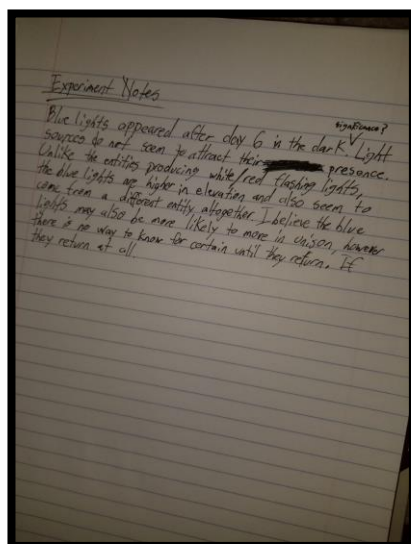 Experiment Notes
significance?
Blue lights appeared after day 6 in the dark. Light
sources do not seem to attract their presence.
Unlike the entities producing white/red flashing lights,
the blue lights are higher in elevation and also seem to
come from a different entity altogether. I believe the blue
lights may also be more likely to move in unison, however
there is no way to know for certain until they return. If
they return at all.